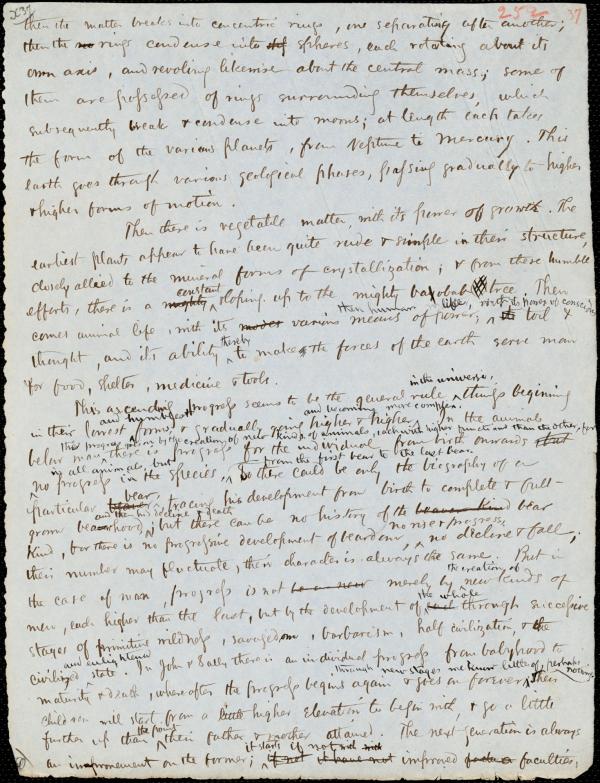 237 252 37
then the matter breaks into concentric rings, one separating after another;
then the rings condense into spheres, each rotating about its
own axis, and revolving likewise about the central mass; some of
them are possessed of rings surrounding themselves, which
subsequently break & condense into moons; at length each takes
the form of the various planets, from Neptune to Mercury. This
earth goes through various geological phases, passing gradually to higher
& higher forms of motion.
Then there is vegetable matter, with its power of growth. The
earliest plants appear to have been quite rude & simple in their structure,
closely allied to the mineral forms of crystallization; & from these humble
constant
efforts, there is a mighty sloping up to the mighty baobab tree. Then
then human life, with its power of conscious
comes animal life, with its various means of power; toil &
thereby
thought, and its ability to make the forces of the earth serve man
for food, shelter, medicine & tools.
in the universe,
This ascending progress seems to be the general rule things begining
and humblest and becoming more complex.
in their lowest forms, & gradually going higher & higher. In the animals
This progress is by the creation of new kinds of animals, each with higher functions than the other, for
below man, there is progress for the individual from birth onwards
in all animals, but from the first bear to the last bear.
no progress in the species, there could be only the biography of a
bear,
particular tracing his development from birth to complete & full-
and then his decline & death
grown bearhood; but there can be no history of the bear
no rise & progress,
kind, for there is no progressive development of beardom, no decline & fall;
their number may fluctuate, their character is always the same. But in
the creation of
the case of man, progress is not merely by new kinds of
the whole
men, each higher than the last, but by the development of through successive
stages of primitive wildness, savagedom, barbarism, half civilization, & the
and enlightened
civilized state. In John & Sally there is an individual progress from babyhood to
through new stages we know little of, perhaps nothing
maturity & death, where after the progress begins again & goes on forever; their
children will start from a little higher elevation to begin with, & go a little
the point
further up than their father & mother attained. The next generation is always
it starts if not with
an improvement on the former; improved faculties,